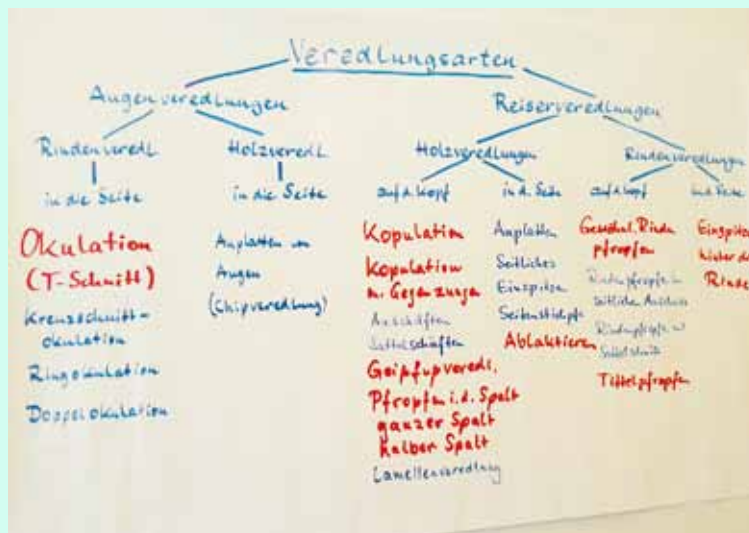 Veredlungsarten
Augenveredlungen
Reiserveredlungen
Rindenveredl
Holzveredl
Holzveredlungen
Rindenveredlungen
in die Seite
in die Seite
auf d. Kopf
in d. Seite
auf d. Kopf
in d.
Okulation
(T-Schnitt)
Kreuzschnitt-
okulation
Ringokulation
Doppelokulation
Anplatten von
Augen
(Chipveredlung)
Kopulation
Kopulation
m. Gegenzungen
Anschäften
Sattelschäften
Geißfußveredl.
Pfropfen i.d. Spalt
ganzer Spalt
halber Spalt
Lamellenveredlung
Anplatten
Seitliches
Einspitzen
Ablaktieren
pfropfen
Tittelpfropfen
Einspitzen
hinter
Rinde